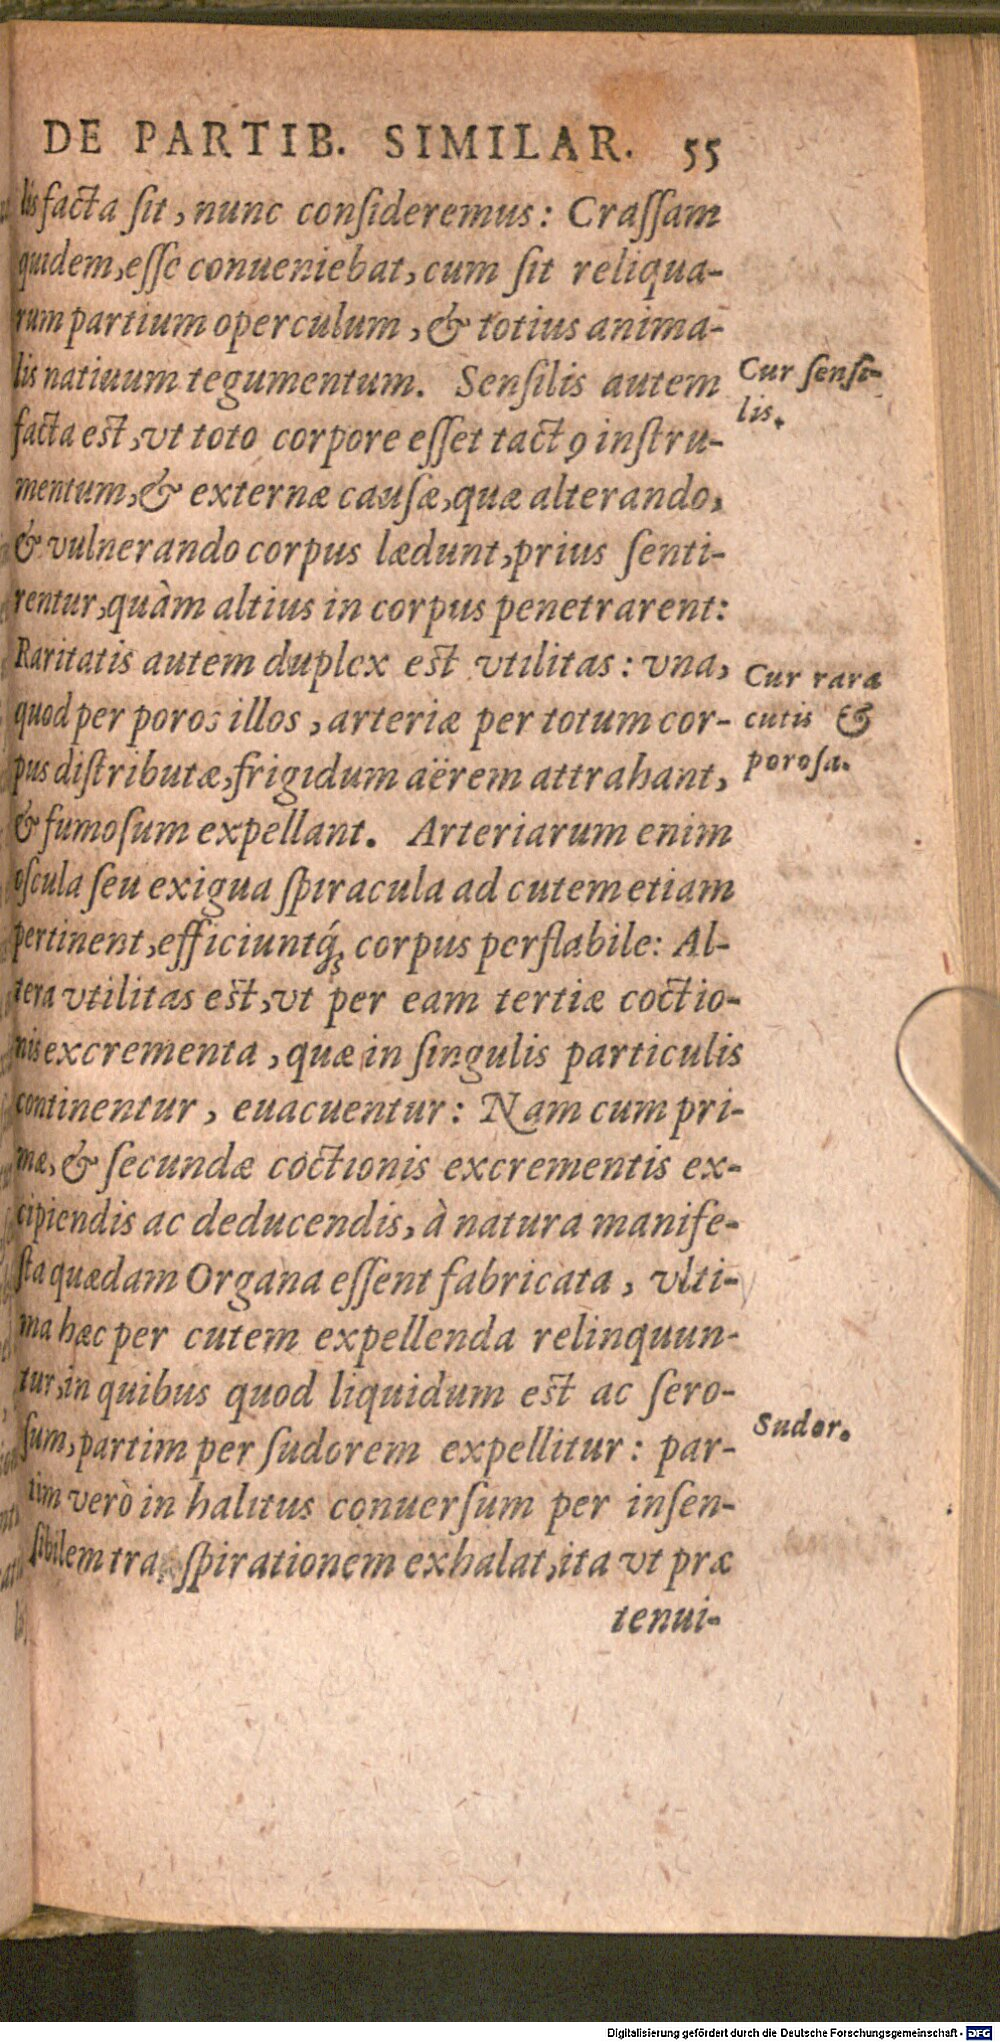 DE PARTIB. SIMILAR. 55
lis facta ſit, nunc conſideremus: Craſſam
quidem, eſſe conueniebat, cum ſit reliqua-
rum partium operculum, & totius anima-
lis natiuum tegumentum. Senſilis autem
facta est, vt toto corpore eſſet tactꝰ inſtru-
mentum, & externæ cauſæ, quæ alterando,
& vulnerando corpus lædunt, prius ſenti-
rentur, quàm altius in corpus penetrarent:
Raritatis autem duplex est vtilitas: vna,
quod per poros illos, arteriæ per totum cor-
pus diſtributæ, frigidum aërem attrahant,
& fumoſum expellant. Arteriarum enim
oſcula ſeu exigua ſpiracula ad cutem etiam
pertinent, efficiuntq́ꝫ corpus perflabile: Al-
tera vtilitas est, vt per eam tertiæ coctio-
nis excrementa, quæ in ſingulis particulis
continentur, euacuentur: Nam cum pri-
mæ, & ſecundæ coctionis excrementis ex-
cipiendis ac deducendis, à natura manife-
ſta quædam Organa eſſent fabricata, vlti-
ma hæc per cutem expellenda relinquun-
tur, in quibus quod liquidum est ac ſero-
ſum, partim per ſudorem expellitur: par-
tim verò in halitus conuerſum per inſen-
ſibilem tra ſpirationem exhalat, ita vt præ
tenui-
Cur ſenſi-
lis.
Cur rara
cutis &
poroſa.
Sudor.
Digitalisierung gefördert durch die Deutsche Forschungsgemeinschaft - DFG